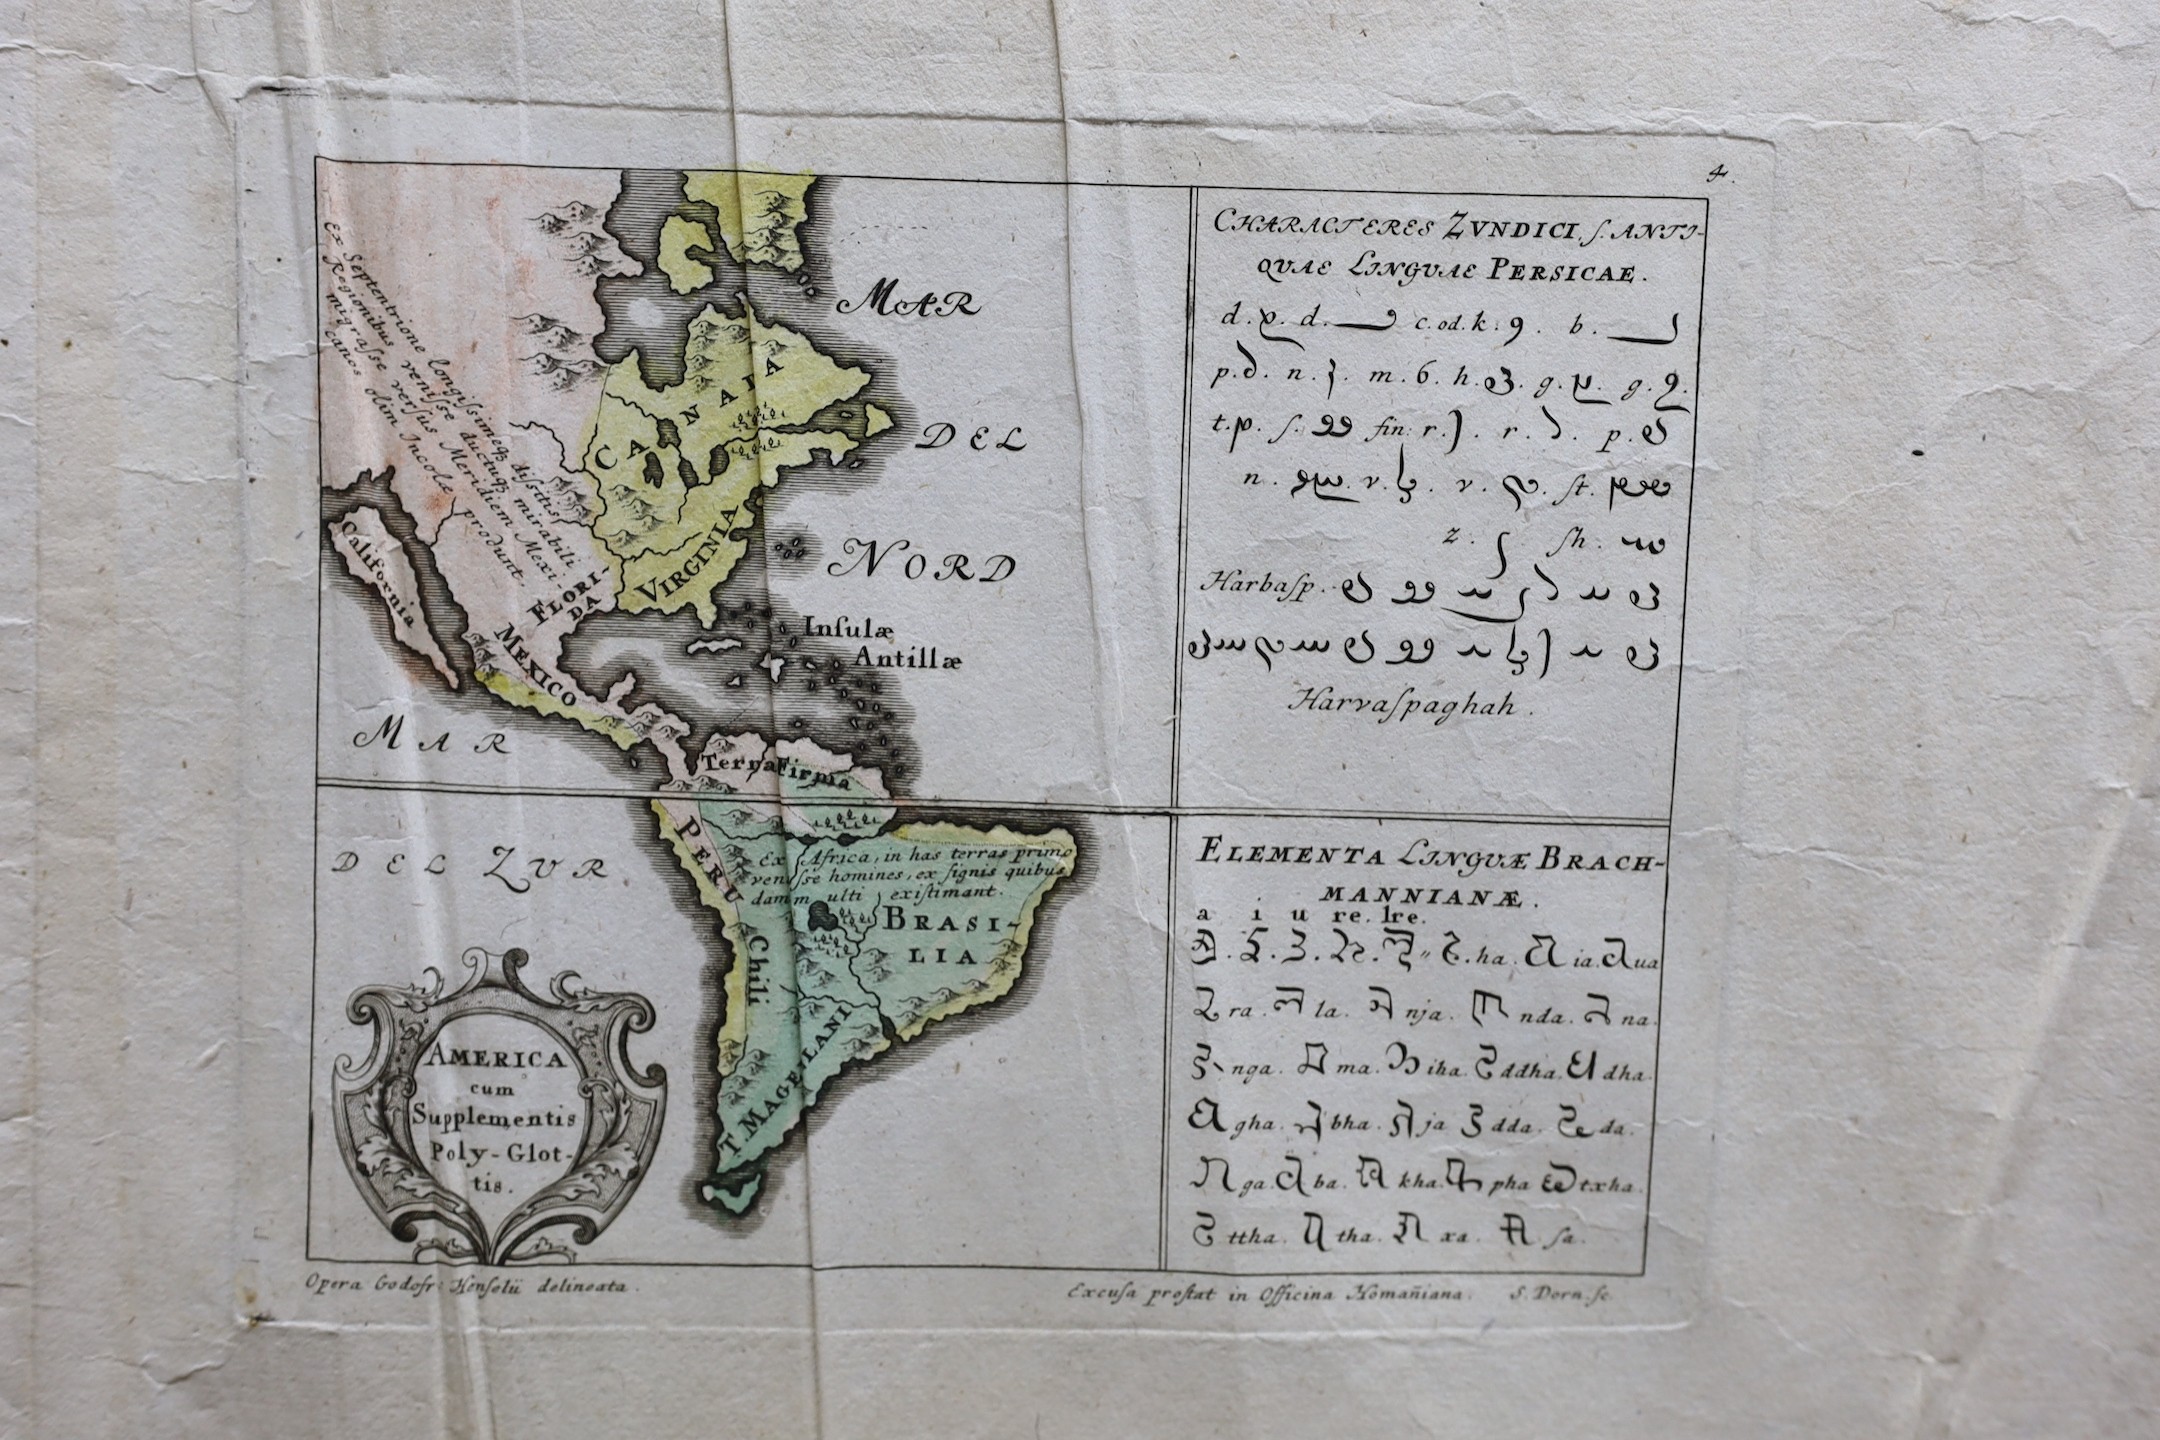 4.
MAR
DEL
NORD
Ex Septentrione longiſsimeqꝫ diſsitis
Regionibus veniſse ductuqꝫ mirabili
migraſse verſus Meridiem Mexi-
canos olim Incolæ produnt.
CANADA
VIRGINIA
FLORI-
DA
California
MEXICO
Inſulæ
Antillæ
MAR
DEL ZUR
Terra Firma
PERU
Ex Africa, in has terras primo
veniſse homines, ex ſignis quibus
dam multi exiſtimant.
BRASI-
LIA
Chili
T. MAGELLANI
AMERICA
cum
Supplementis
Poly-Glot-
tis.
CHARACTERES ZVNDICI ſ. ANTI-
QVAE LINGVAE PERSICAE.
d. d. c. od. k. b.
p. n. m. h. g. g.
t. ſ. fin: r. r. p.
n. v. v. ſt.
z. ſh.
Harbaſp.
Harvaſpaghah.
ELEMENTA LINGUÆ BRACH-
MANNIANÆ.
a i u re. lre.
ha. ia. ua
ra. la. nja. nda. na.
nga. ma. iha. ddha. dha.
gha. bha. ja dda. da.
ga. ba. kha. pha txha.
ttha. tha. xa. ſa.
Opera Godofr: Henſelii delineata.
Excuſa proſtat in Officina Homañiana. S. Dorn. ſc.